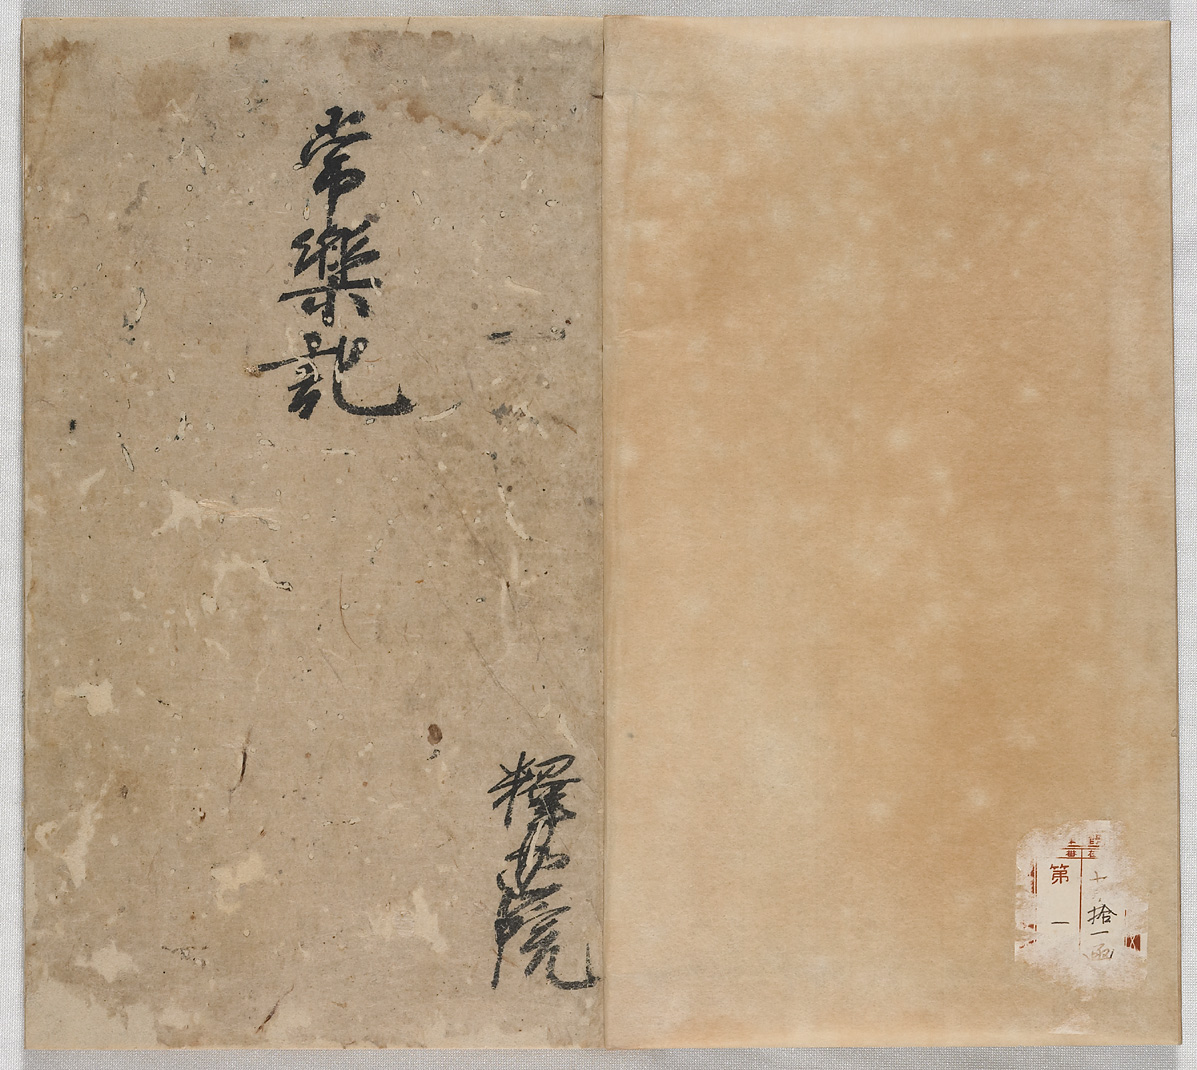 拾一函
第一
常樂記
釋迦院